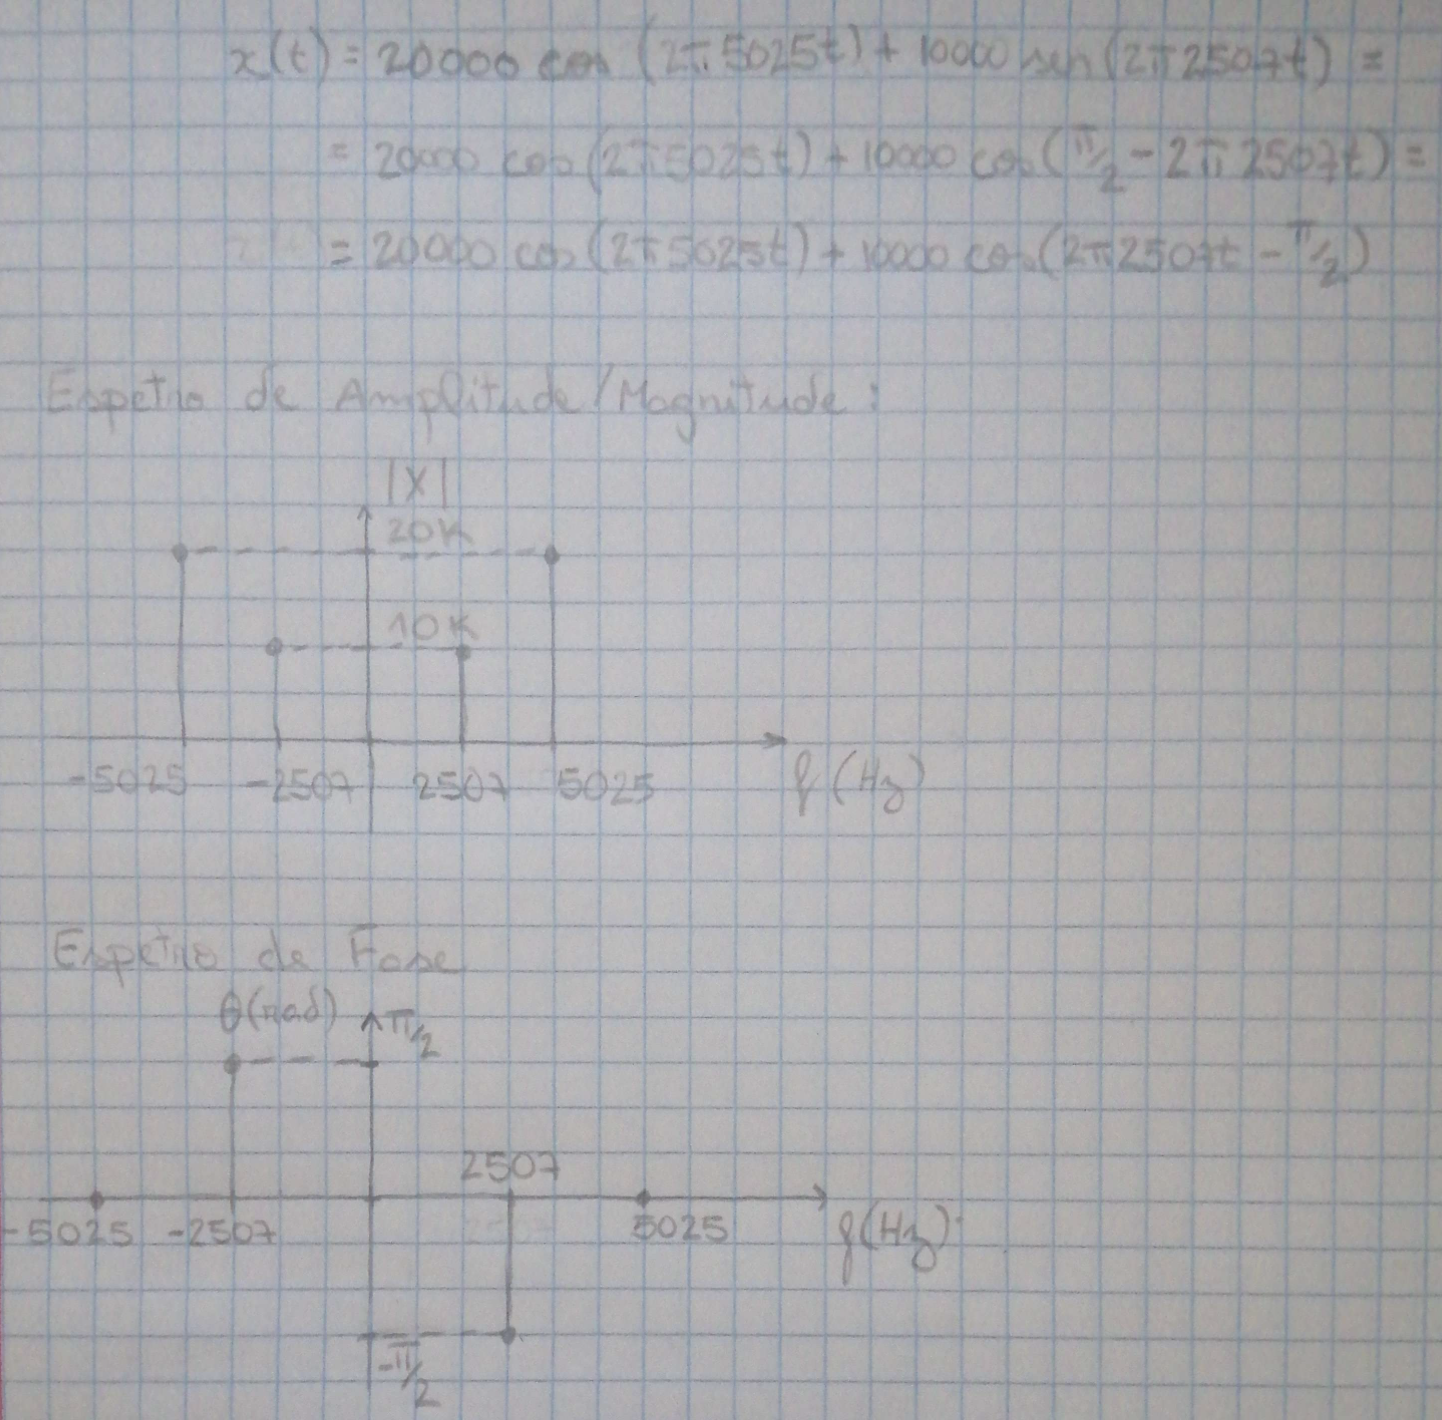 x(t) = 20000 cos (2π 5025t) + 10000 sen (2π 2507t) =
= 20000 cos (2π 5025t) + 10000 cos (π/2 - 2π 2507t) =
= 20000 cos (2π 5025t) + 10000 cos (2π 2507t - π/2)
Espetro de Amplitude/Magnitude:
|X|
20K
10K
-5025 -2507 2507 5025 f (Hz)
Espetro de Fase
θ(rad) π/2
2507
-5025 -2507 5025 f(Hz)
-π/2